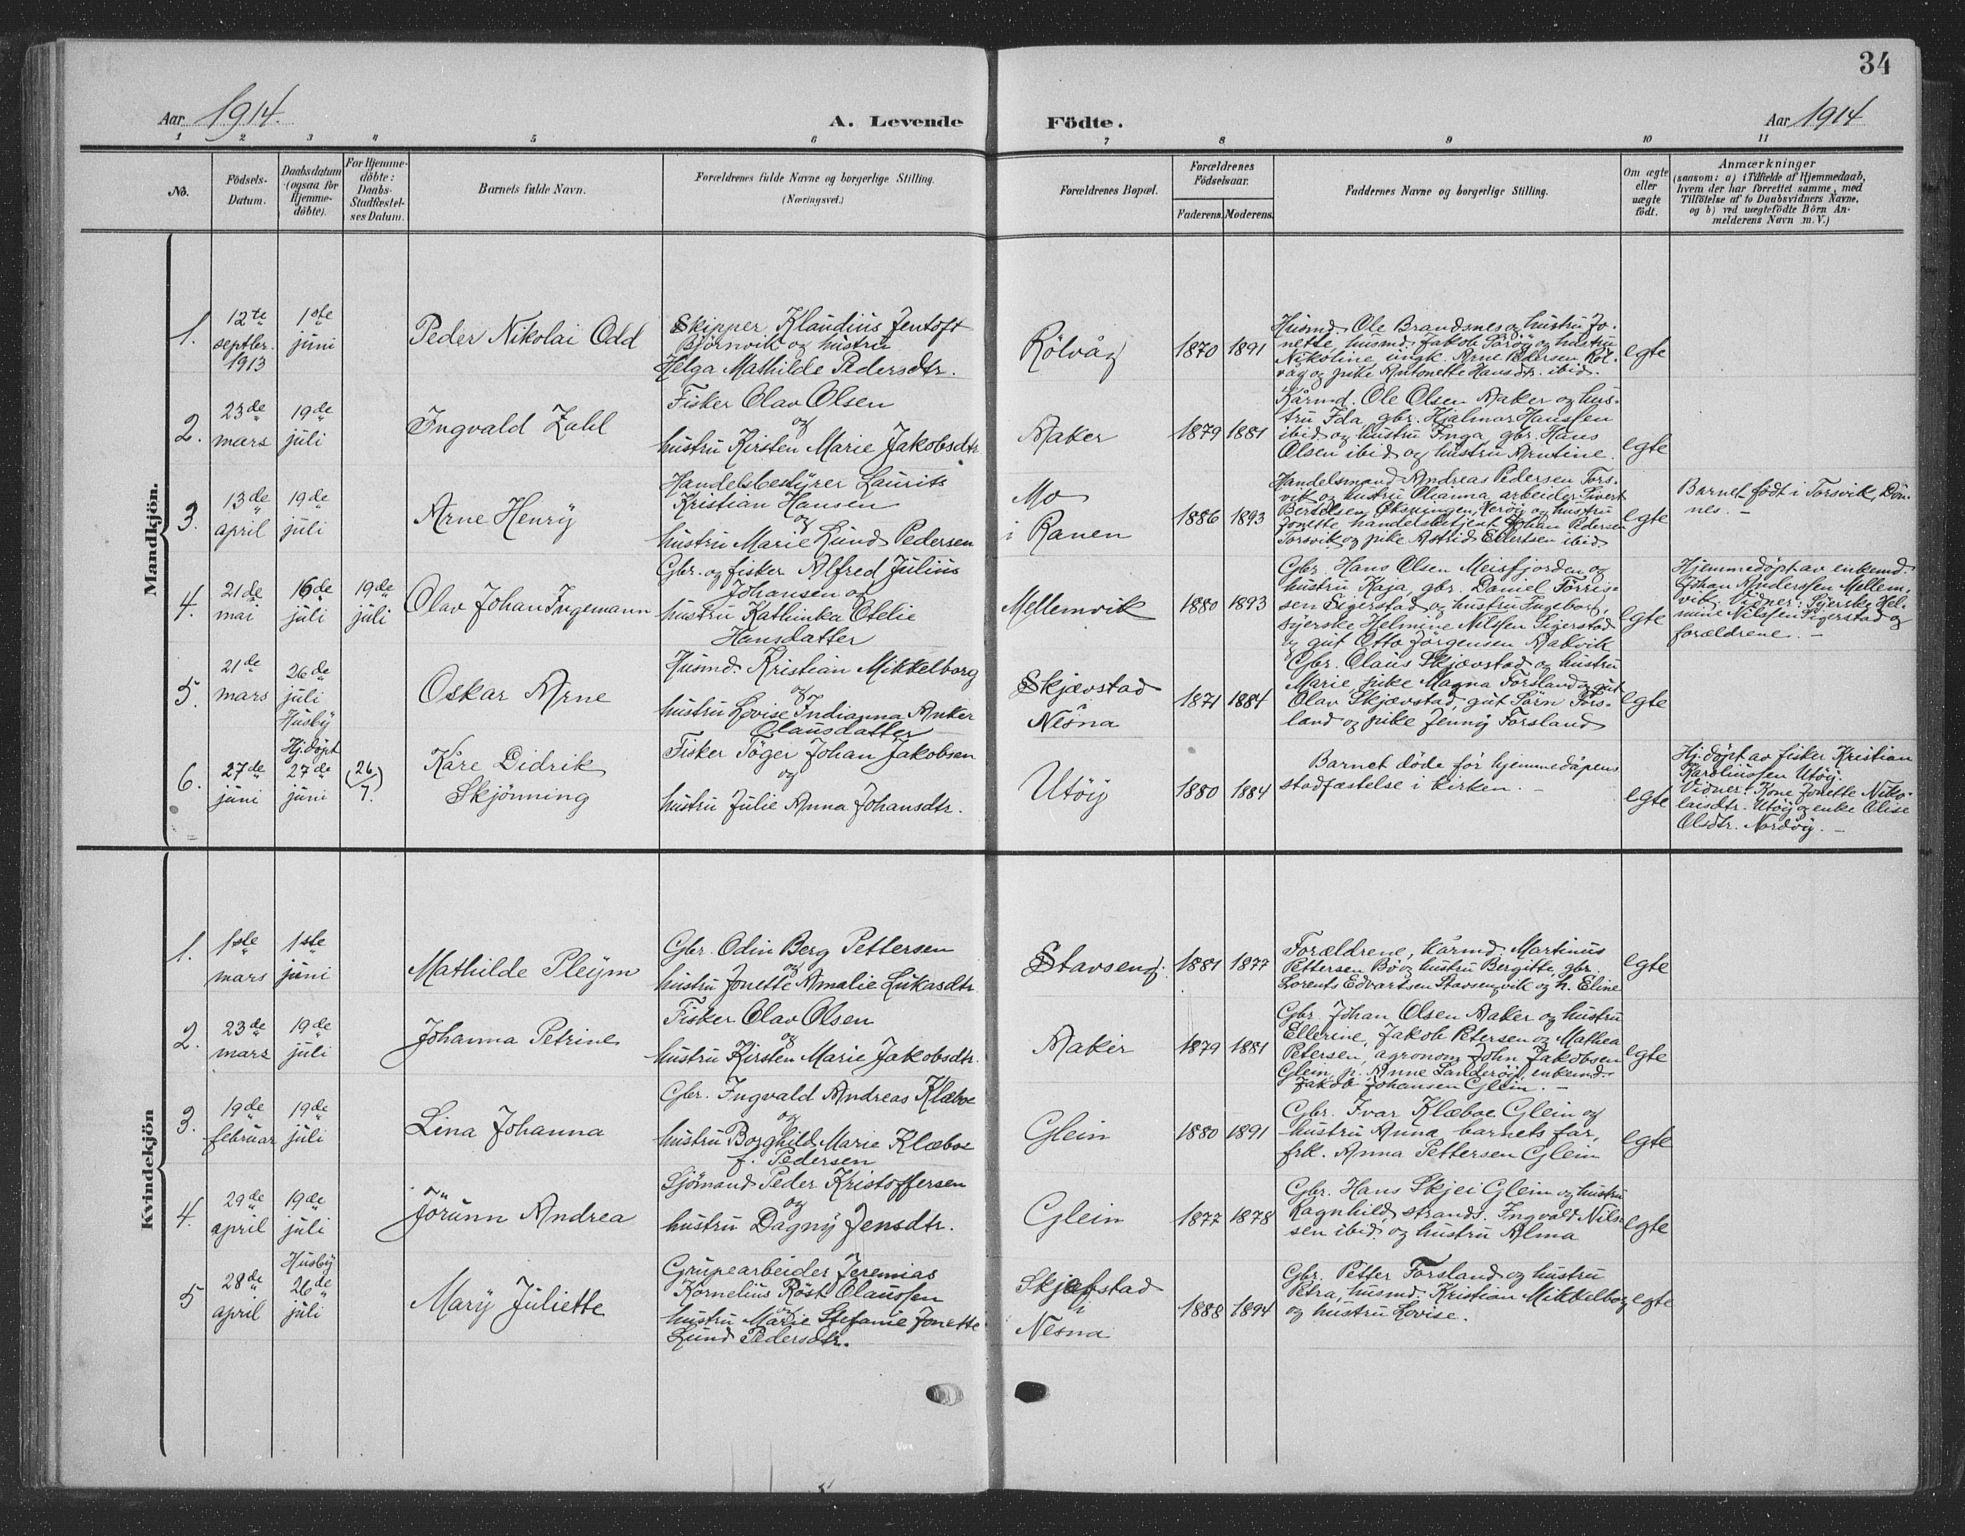 34
Aar 1914.
A. Levende
Födte.
Aar 1914
1 2 3 4 5 6 7 8 9 10 11
No.
Födsels-
Datum.
Daabsdatum
(ogsaa for
Hjemme-
döbte).
For Hjemme-
döbte:
Daabs-
Stadfæstel-
ses Datum.
Barnets fulde Navn.
Forældrenes fulde Navne og borgerlige Stilling.
(Næringsvei.)
Forældrenes Bopæl.
Forældrenes
Födselsaar.
Faderens. Moderens.
Faddernes Navne og borgerlige Stilling.
Om ægte
eller
uægte
födt.
Anmærkninger
(saasom: a) i Tilfælde af Hjemmedaab,
hvem der har forrettet samme, med
Tilföielse af to Daabsvidners Navne,
og b) ved uægtefödte Börn An-
melderens Navn m. V.)
Mandkjön.
1.
12te
septbr.
1913
1ste
juni
Peder Nikolai Odd
Skipper Klaudius Jentoft
Bjørnvik og hustru
Helga Mathilde Pedersdtr.
Rölvåg
1870 1891
Husmd. Ole Brandsnes og hustru Jo-
nette, husmd. Jakob Sørøy og hustru
Nikoline, ungk. Arne Pedersen Röl-
våg og pike Antonette Hansdtr. ibid.
egte
2.
23de
mars
19de
juli
Ingvald Zahl
Fisker Olav Olsen
og
hustru Kirsten Marie Jakobsdtr.
Aaker
1879 1881
Kårmd. Ole Olsen Aaker og hus-
tru Ida, gbr. Hjalmar Hanssen
ibid og hustru Inga, gbr. Hans
Olsen ibid og hustru Arntine.
egte
3.
13de
april
19de
juli
Arne Henry
Handelsbestyrer Laurits
Kristian Hansen
og
hustru Marie Lund Pedersen
Mo
i Ranen
1886 1893
Handelsmand Andreas Pedersen Tors-
vik og hustru Oleanna, arbeider Sivert
Bertelsen Øksningen, Herøy og hustru
Jonette, handelsbetjent Johan Pedersen
Torsvik og pike Astrid Ellertsen ibid
egte
Barnet født i Torsvik, Døn-
nes. -
4.
21de
mai
16de
juli
19de
juli
Olav Johan Ingemann
Gbr. og fisker Alfred Julius
Johansen og
hustru Kathinka Otelie
Hansdatter
Mellemvik
1880 1893
Gbr. Hans Olsen Meisfjorden og
hustru Kaja, gbr. Daniel Torris-
sen Sigerstad og hustru Ingeborg,
syerske Helmine Nilssen Sigerstad
og gut Otto Jørgensen Aakvik
egte
Hjemmedøpt av enkemd.
Johan Anderssen Mellem-
vik. Vidner: Syerske Hel-
mine Nilssen Sigerstad og
forældrene. -
5.
21de
mars
26de
juli
Husby
Oskar Arne
Husmd. Kristian Mikkelborg
og
hustru Lovise Indianna Anker
Olausdatter
Skjævstad
i
Nesna
1871 1884
Gbr. Olaus Skjævstad og hustru
Marie, pike Magna Forsland og gut
Olav Skjævstad, gut Sörn Fors-
land og pike Jenny Forsland
egte
6.
27de
juni
Hj.döpt
27de
juni
(26/7.)
Kåre Didrik
Skjönning
Fisker Töger Johan Jakobsen
og
hustru Julie Anna Johansdtr.
Utöy
1880 1884
Barnet døde før hjemmedåpens
stadfæstelse i kirken. -
egte
Hj.døpt av fisker Kristian
Karolinssen Utøy.
Vidner: Kone Jonette Niko-
laisdtr. Utøy og enke Olise
Olsdtr. Nordøy. -
Kvindekjön
1.
1ste
mars
1ste
juni
Mathilde Pleym
Gbr. Odin Berg Pettersen
og
hustru Jonette Amalie Lukasdtr.
Stavseng.
1881 1877
Forældrene, kårmd. Martinus
Pettersen Bö og hustru Bergitte, gbr.
Lorents Edvartsen Stavsengvik og h. Eline
egte
2.
23de
mars
19de
juli
Johanna Petrine
Fisker Olav Olsen
og
hustru Kirsten Marie Jakobsdtr.
Aaker
1879 1881
Gbr. Johan Olsen Aaker og hustru
Ellerine, Jakob Petersen og Mathea
Petersen, agronom John Jakobsen
Glein, p. Anne Sanderöy, enkemd.
Jakob Johansen Glein. -
egte
3.
19de
februar
19de
juli
Lina Johanna
Gbr. Ingvald Andreas Klæboe
og
hustru Borghild Marie Klæboe
f. Pedersen
Glein
1880 1891
Gbr. Ivar Klæboe Glein og
hustru Anna, barnets far,
frk. Anna Pettersen Glein
egte
4.
29de
april
19de
juli
Jörunn Andrea
Sjömand Peder Kristoffersen
og
hustru Dagny Jensdtr.
Glein
1877 1878
Gbr. Hans Skjei Glein og hustru
Ragnhild, strands. Ingvald Nils-
sen ibid, og hustru Alma
egte
5
28de
april
Husby
26de
juli
Mary Juliette
Grupearbeider Jeremias
Kornelius Röst Olaussen
og
hustru Marie Stefanie Jonette
Lund Pedersdtr.
Skjæfstad
i
Nesna
1888 1894
Gbr. Petter Forsland og hustru
Petra, husmd. Kristian Mikkelborg
og hustru Lovise.
egte